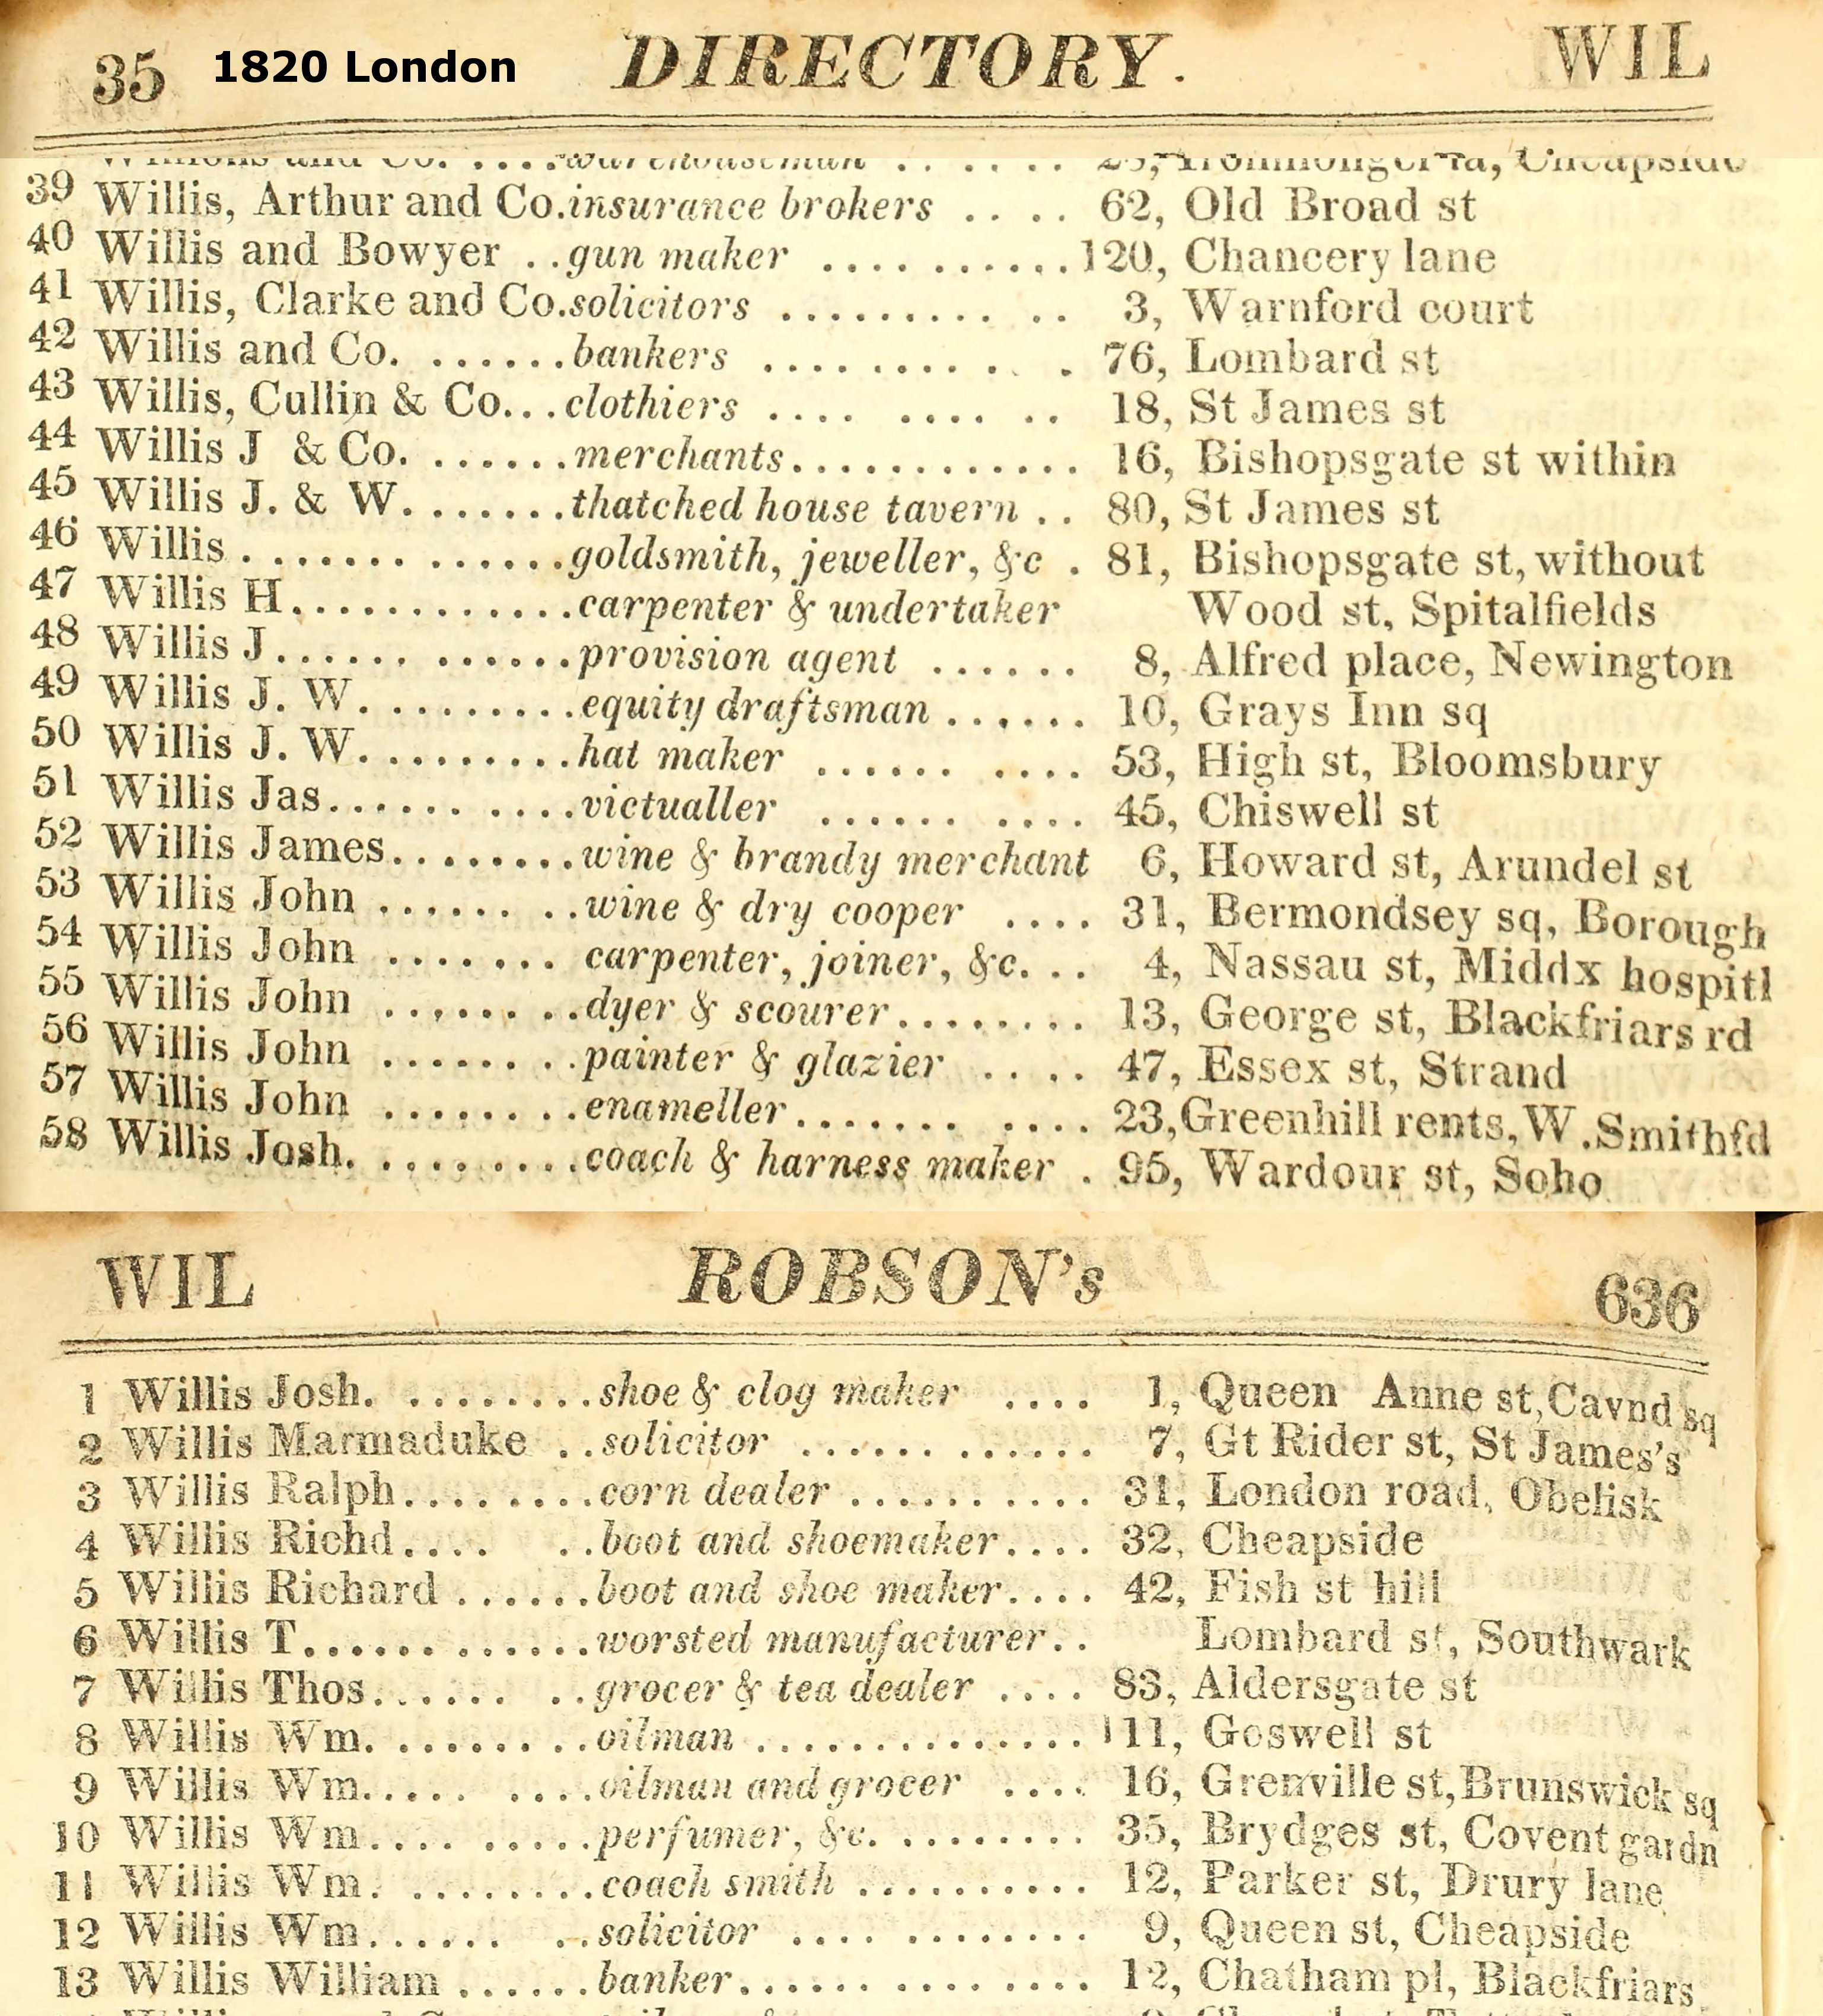 35 1820 London DIRECTORY. WIL
39 Willis, Arthur and Co. insurance brokers .... 62, Old Broad st
40 Willis and Bowyer .. gun maker .......... 120, Chancery lane
41 Willis, Clarke and Co. solicitors ......... .. 3, Warnford court
42 Willis and Co. ...... bankers .......... . . 76, Lombard st
43 Willis, Cullin & Co... clothiers .... .... .. 18, St James st
44 Willis J & Co. ...... merchants............ 16, Bishopsgate st within
45 Willis J. & W....... thatched house tavern .. 80, St James st
46 Willis ....... ...... goldsmith, jeweller, &c . 81, Bishopsgate st, without
47 Willis H............ carpenter & undertaker Wood st, Spitalfields
48 Willis J...... ...... provision agent ...... 8, Alfred place, Newington
49 Willis J. W......... equity draftsman ...... 10, Grays Inn sq
50 Willis J. W......... hat maker ...... .... 53, High st, Bloomsbury
51 Willis Jas...... .... victualler ...... .... 45, Chiswell st
52 Willis James........ wine & brandy merchant 6, Howard st, Arundel st
53 Willis John ...... .. wine & dry cooper .... 31, Bermondsey sq, Borough
54 Willis John ....... carpenter, joiner, &c. .. 4, Nassau st, Middx hospitl
55 Willis John ...... .. dyer & scourer........ 13, George st, Blackfriars rd
56 Willis John ...... .. painter & glazier .... 47, Essex st, Strand
57 Willis John ........ enameller....... .... 23, Greenhill rents, W. Smithfd
58 Willis Josh. ......... coach & harness maker . 95, Wardour st, Soho
WIL ROBSON's 636
1 Willis Josh. ........ shoe & clog maker .... 1, Queen Anne st, Cavnd sq
2 Willis Marmaduke .. solicitor ............ 7, Gt Rider st, St James's
3 Willis Ralph........ corn dealer .......... 31, London road, Obelisk
4 Willis Richd.... .. boot and shoemaker.... 32, Cheapside
5 Willis Richard ...... boot and shoe maker.... 42, Fish st hill
6 Willis T...... ...... worsted manufacturer.. Lombard st, Southwark
7 Willis Thos...... .. grocer & tea dealer .... 83, Aldersgate st
8 Willis Wm. ........ oilman .............. 111, Goswell st
9 Willis Wm..... .... oilman and grocer .... 16, Grenville st, Brunswick sq
10 Willis Wm.... ..... perfumer, &c. ........ 35, Brydges st, Covent gardn
11 Willis Wm. ........ coach smith .......... 12, Parker st, Drury lane
12 Willis Wm...... .. solicitor .... ........ 9, Queen st, Cheapside
13 Willis William ...... banker............... 12, Chatham pl, Blackfriars